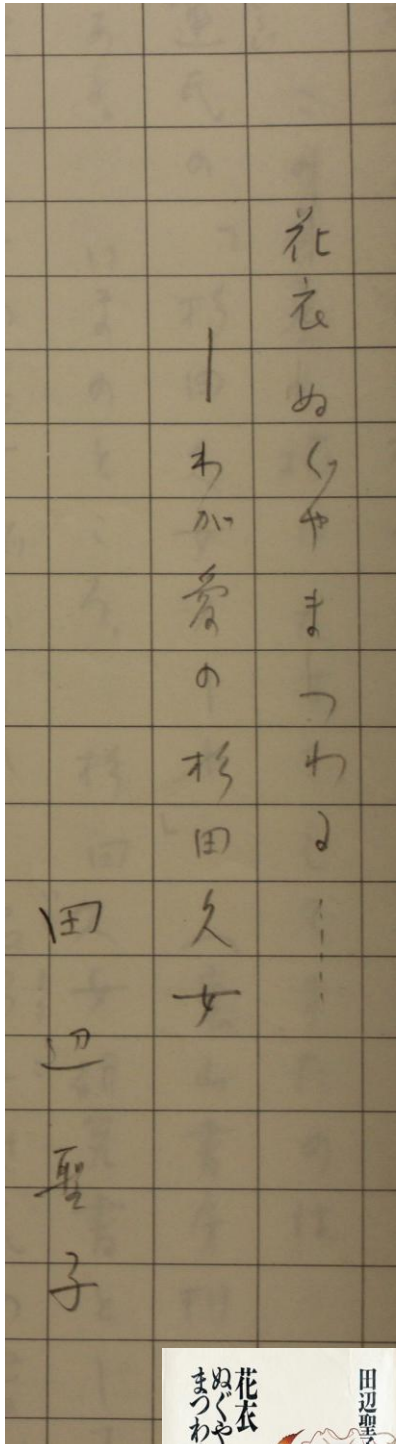 花衣ぬぐやまつわる……
―わが愛の杉田久女
田辺聖子
田辺聖
花衣
ぬぐや
まつわ